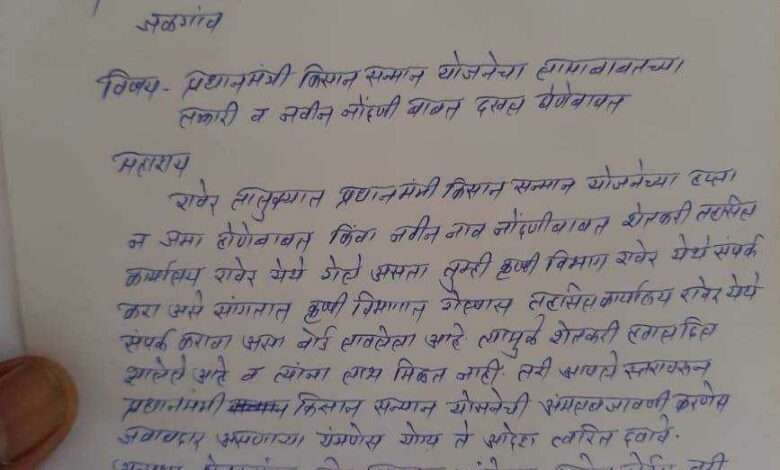 जळगांव
विषय- प्रधानमंत्री किसान सन्मान योजनेचा लाभाबाबतच्या
तक्रारी व नवीन नोंदणी बाबत दखल घेणेबाबत
महाशय
रावेर तालुक्यात प्रधानमंत्री किसान सन्मान योजनेच्या हप्ता
न जमा होणेबाबत किंवा नवीन नाव नोंदणीबाबत शेतकरी तहसिल
कार्यालय रावेर येथे गेले असता तुम्ही कृषी विभाग रावेर येथे संपर्क
करा असे सांगतात कृषी विभागात गेल्यास तहसिल कार्यालय रावेर येथे
संपर्क करावा असा बोर्ड लावलेला आहे. त्यामुळे शेतकरी हवालदिल
झालेले आहे व त्यांना लाभ मिळत नाही. तरी आपले स्तरावरून
प्रधानमंत्री किसान सन्मान योजनेची अंमलबजावणी करणेस
जबाबदार असणाऱ्या यंत्रणेस योग्य ते आदेश त्वरित द्यावे.